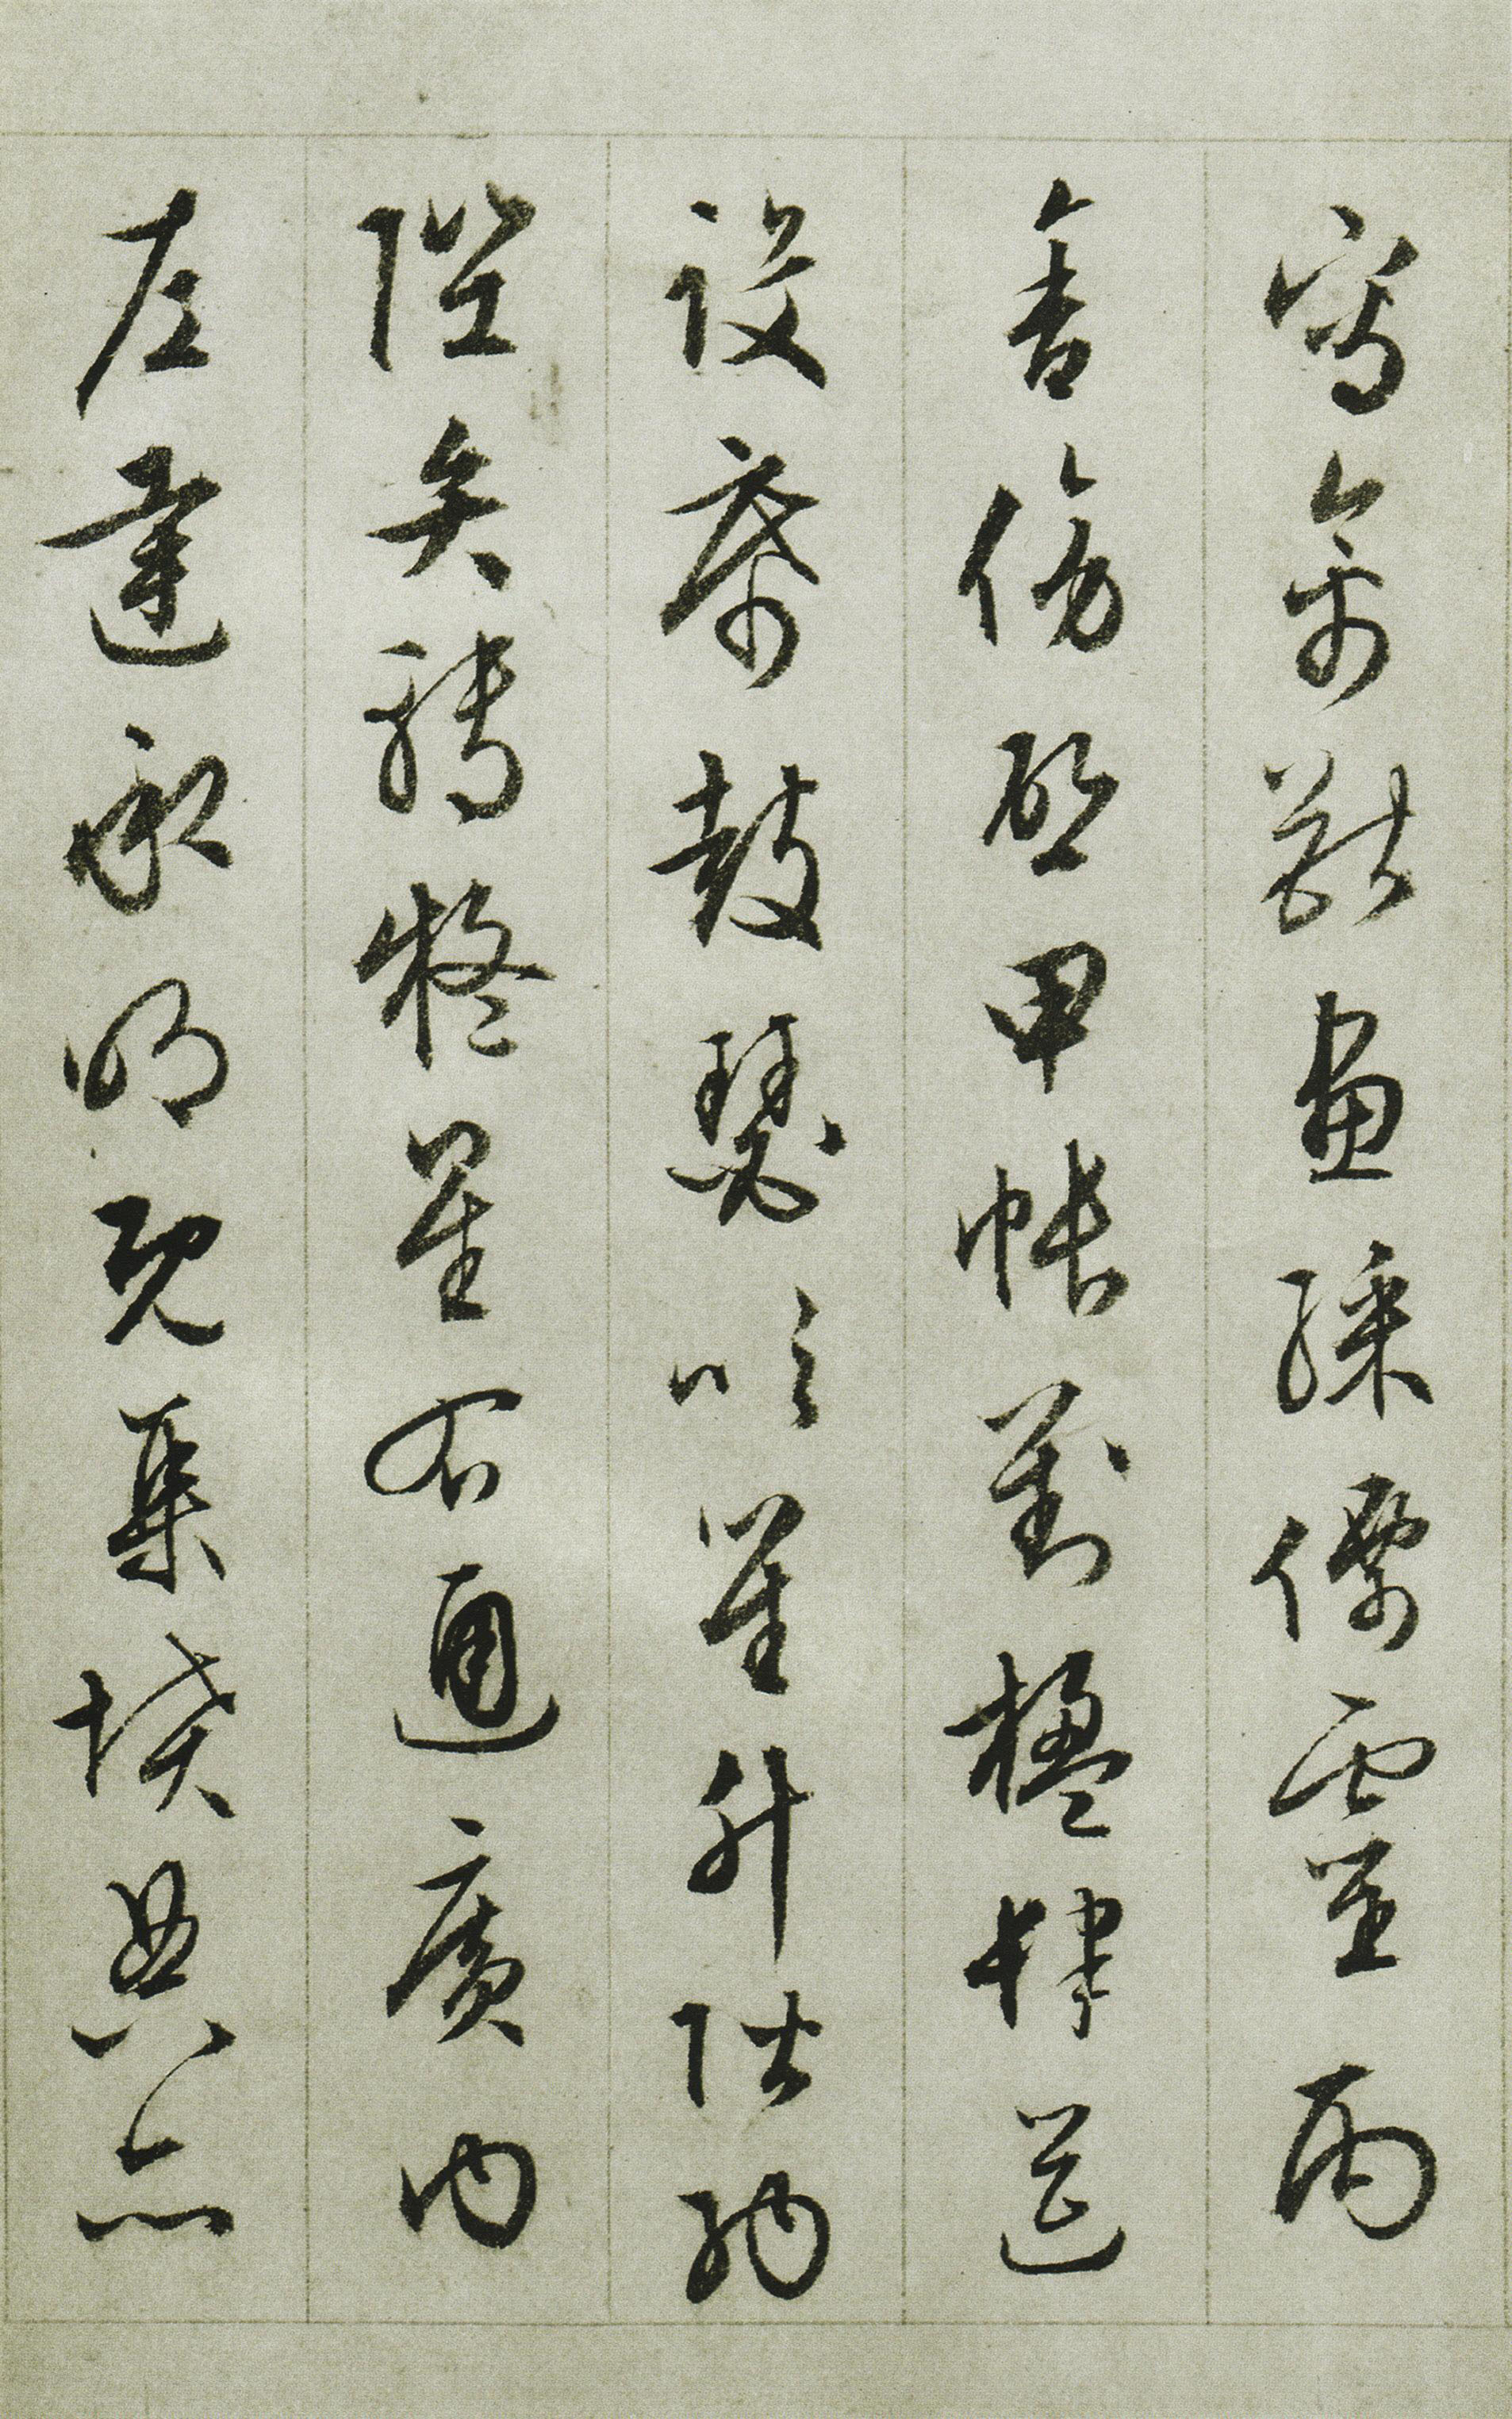 寫禽獸畫綵僊靈丙
舍傍啓甲帳對楹肆筵
設席鼓瑟吹笙升階納
陛弁轉疑星右通廣內
左達承明既集墳典亦